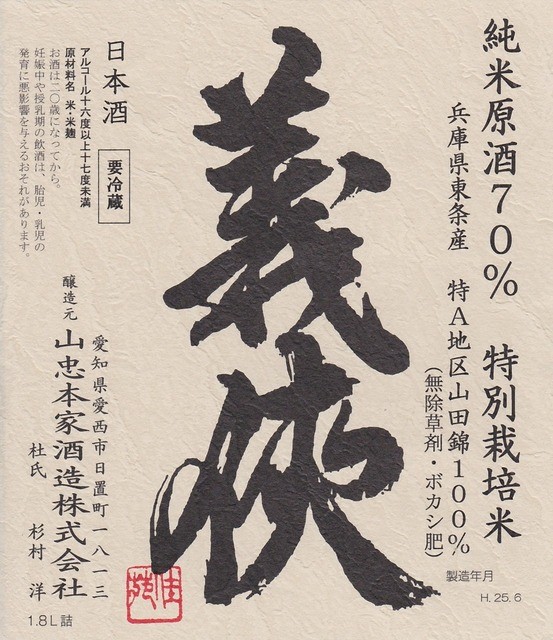 純米原酒70% 特別栽培米
兵庫県東条産 特A地区山田錦100%
(無除草剤・ボカシ肥)
製造年月
H.25.6
義侠
日本酒
要冷蔵
アルコール十六度以上十七度未満
原材料名 米・米麹
お酒は二〇歳になってから。
妊娠中や授乳期の飲酒は、胎児・乳児の
発育に悪影響を与えるおそれがあります。
愛知県愛西市日置町一八一三
醸造元 山忠本家酒造株式会社
杜氏 杉村 洋
1.8L詰